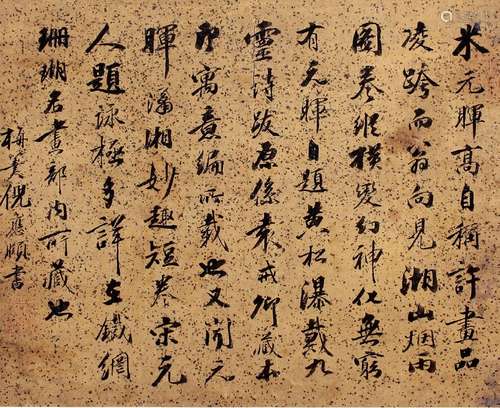 米元暉高自稱許畫品
凌跨而翁向見湖山烟雨
圖卷縱橫變幻神化無窮
有元暉自題黄松瀑戴九
靈詩跋原係袁戒卿藏本
即寓意編所載也又閱元
暉瀟湘妙趣短卷宋元
人題詠極多詳在鐵網
珊瑚名畫部内所藏也
梅 倪 書